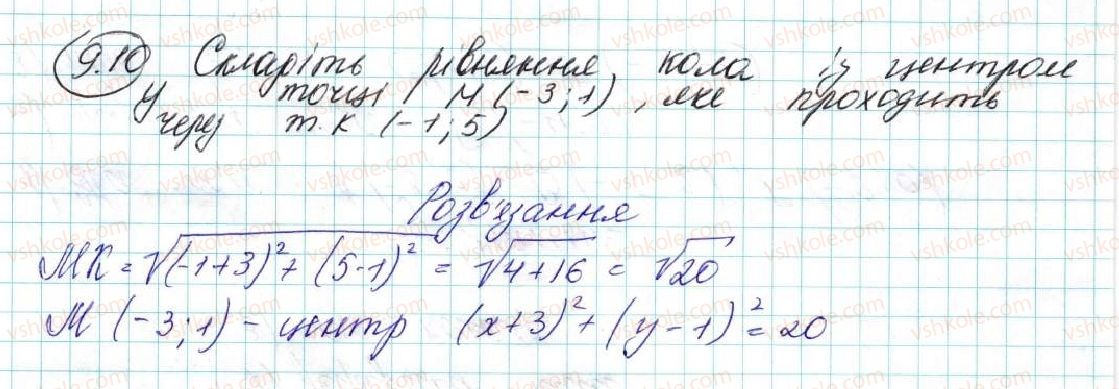 9.10 Складіть рівняння кола із центром
у точці М(-3;1), яке проходить
через т. К (-1;5)
Розв'язання
МК = √(-1+3)² + (5-1)² = √4+16 = √20
М (-3;1) - центр (x+3)² + (y-1)² = 20